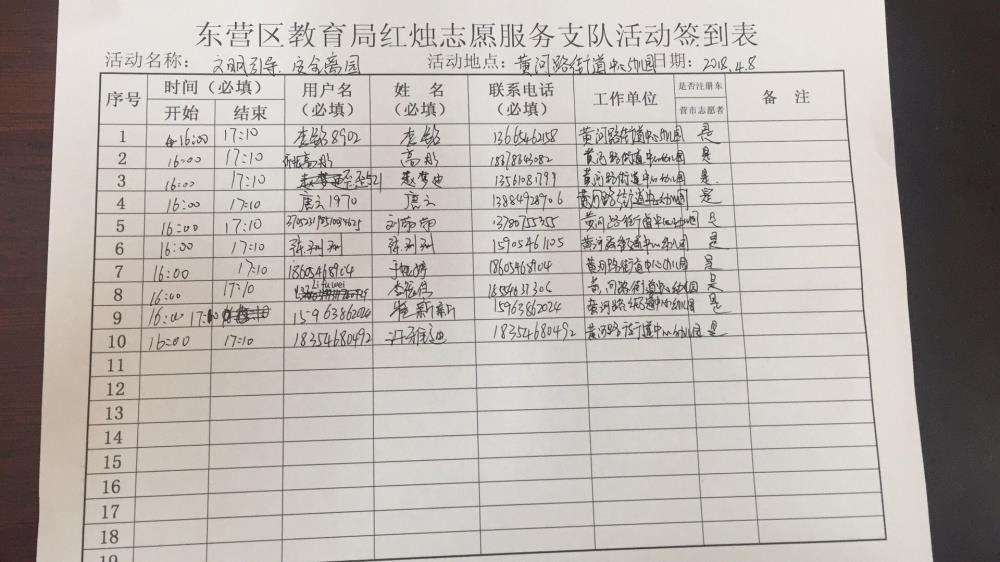 东营区教育局红烛志愿服务支队活动签到表
活动名称: 文明引导、安全离园 活动地点:黄河路街道中心幼儿园 日期: 2018.4.8
序号 时间（必填） 用户名（必填） 姓 名（必填） 联系电话（必填） 工作单位 是否注册东营市志愿者 备 注
开始 结束
1 16:00 17:10 李铭8902 李铭 13665462158 黄河路街道中心幼儿园 是
2 16:00 17:10 高彤 黄河路街道中心幼儿园 是
3 16:00 17:10 赵梦迪 13561081799 黄河路街道中心幼儿园 是
4 16:00 17:10 唐云1970 唐云 13884928906 黄河路街道中心幼儿园 是
5 16:00 17:10 13780755355 黄河路街道中心幼儿园 是
6 16:00 17:10 15905461105 黄河路街道中心幼儿园 是
7 16:00 17:10 18605468904 18605468904 黄河路街道中心幼儿园 是
8 16:00 17:10 黄河路街道中心幼儿园 是
9 16:00 17:10 15963862024 新新 15963862024 黄河路街道中心幼儿园 是
10 16:00 17:10 18354680492 许雅迪 18354680492 黄河路街道中心幼儿园 是
11
12
13
14
15
16
17
18
19